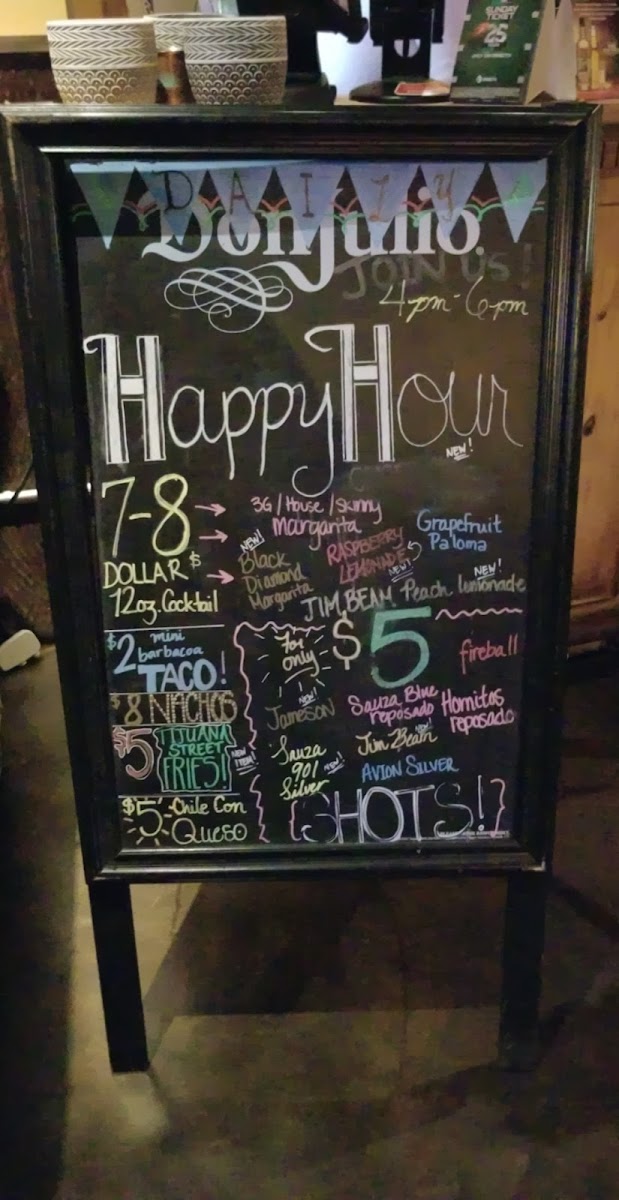 SUNDAY
TICKET
25
DAILY
Don Julio
JOIN US!
4pm-6pm
Happy Hour
NEW!
7-8
DOLLAR $
12oz. Cocktail
3G/House/Skinny
Margarita
NEW!
Black
Diamond
Margarita
RASPBERRY
LEMONADE
NEW!
Grapefruit
Paloma
NEW!
JIM BEAM Peach lemonade
$2 mini
barbacoa
TACO!
$8 NACHOS
$5 TIJUANA
STREET
FRIES!
NEW
ITEM!
$5 Chile Con
Queso
for
only
$5
fireball
NEW!
Jameson
Sauza Blue
reposado
Hornitos
reposado
Sauza
901
Silver
NEW!
Jim Beam
NEW!
AVION SILVER
SHOTS!